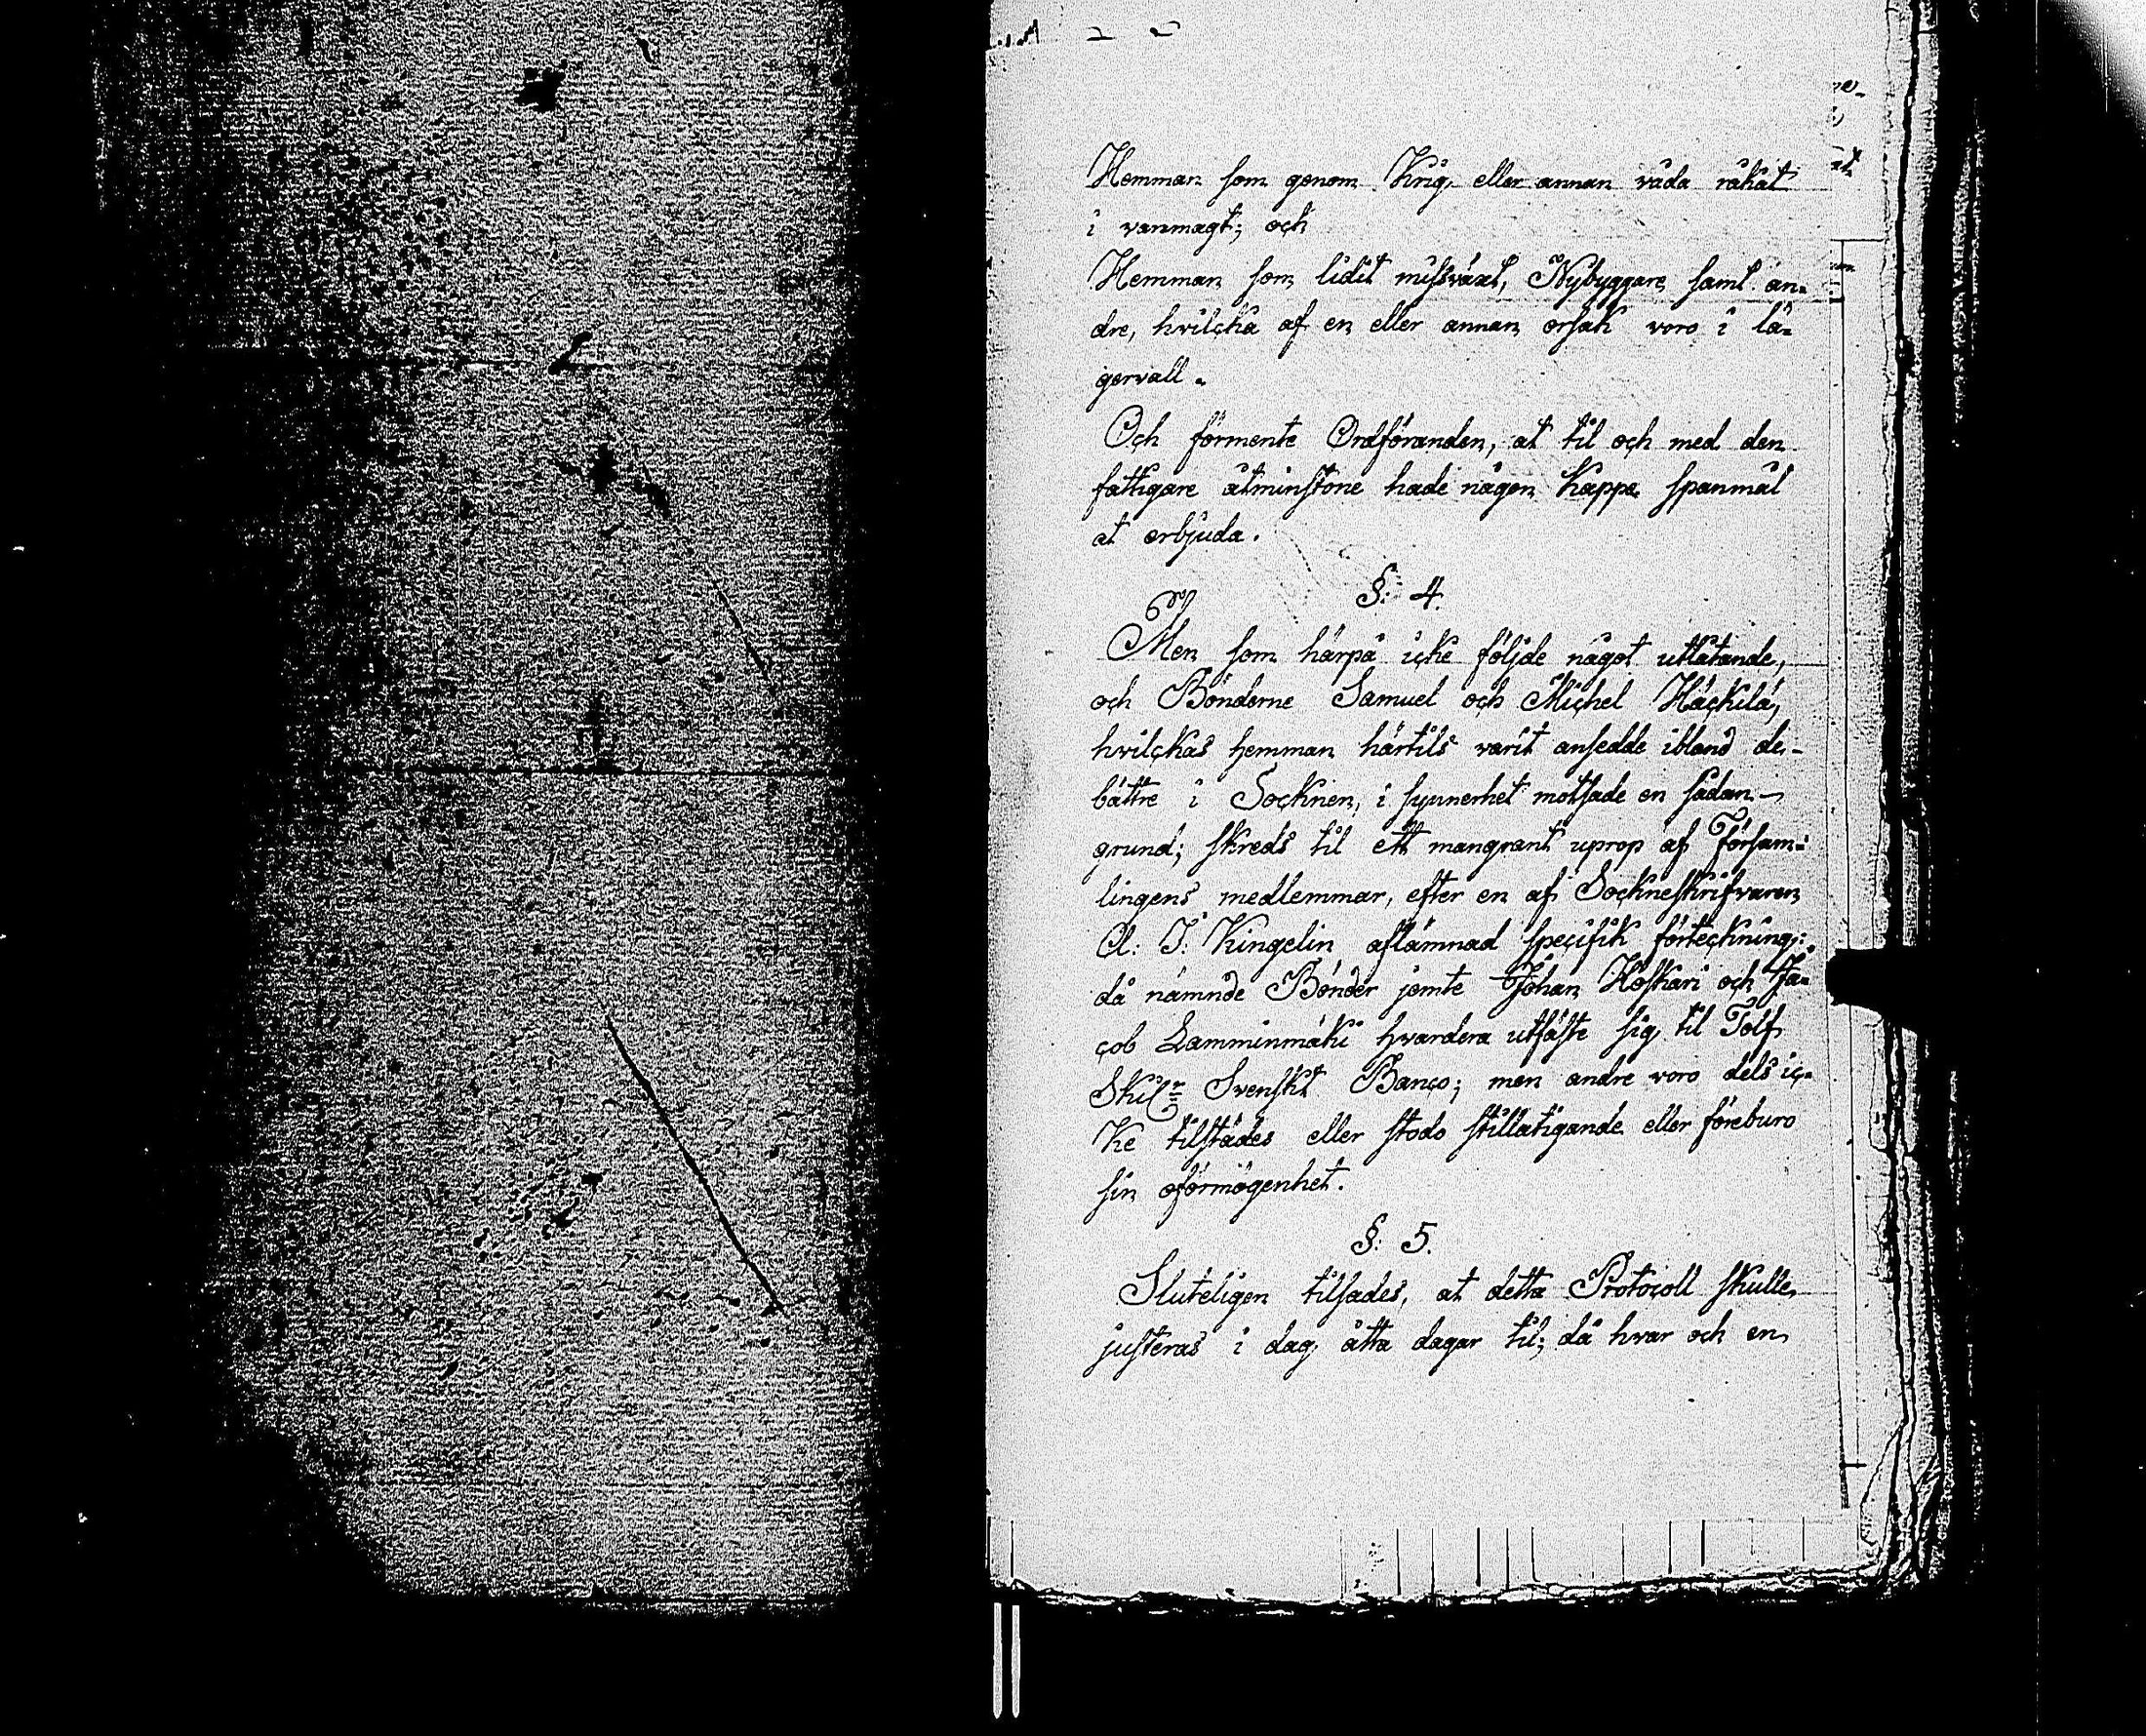 Hemman som genom Krig, eller annan våda råkat
i vanmagt; och
Hemman som lidit missväxt, Nybyggare, samt an-
dre, hvilcka af en eller annan orsak voro i lä-
gervall.
Och förmente Ordföranden, at til och med den
fattigare åtminstone hade någon Kappe spanmål
at erbjuda.
§: 4.
Men som härpå icke följde något utlåtande,
och Bönderne Samuel och Michel Häckilä,
hvilckas hemman härtils varit ansedde ibland de
bättre i Socknen, i synnerhet motsade en sådan
grund; skreds til ett mangrant uprop af Försam-
lingens medlemmar, efter en af Sockneskrifvaren
A: J: Kingelin aflämnad specifik förteckning:
då nämnde Bönder jemte Johan Koskari och Ja-
cob Lamminmäki hvardera utfäste sig til Tolf
Skil:r Svenskt Banco; men andre voro dels ic-
ke tilstädes eller stodo stillatigande eller föreburo
sin oförmögenhet.
§: 5.
Sluteligen tilsades, at detta Protocoll skulle
justeras i dag åtta dagar til; då hvar och en